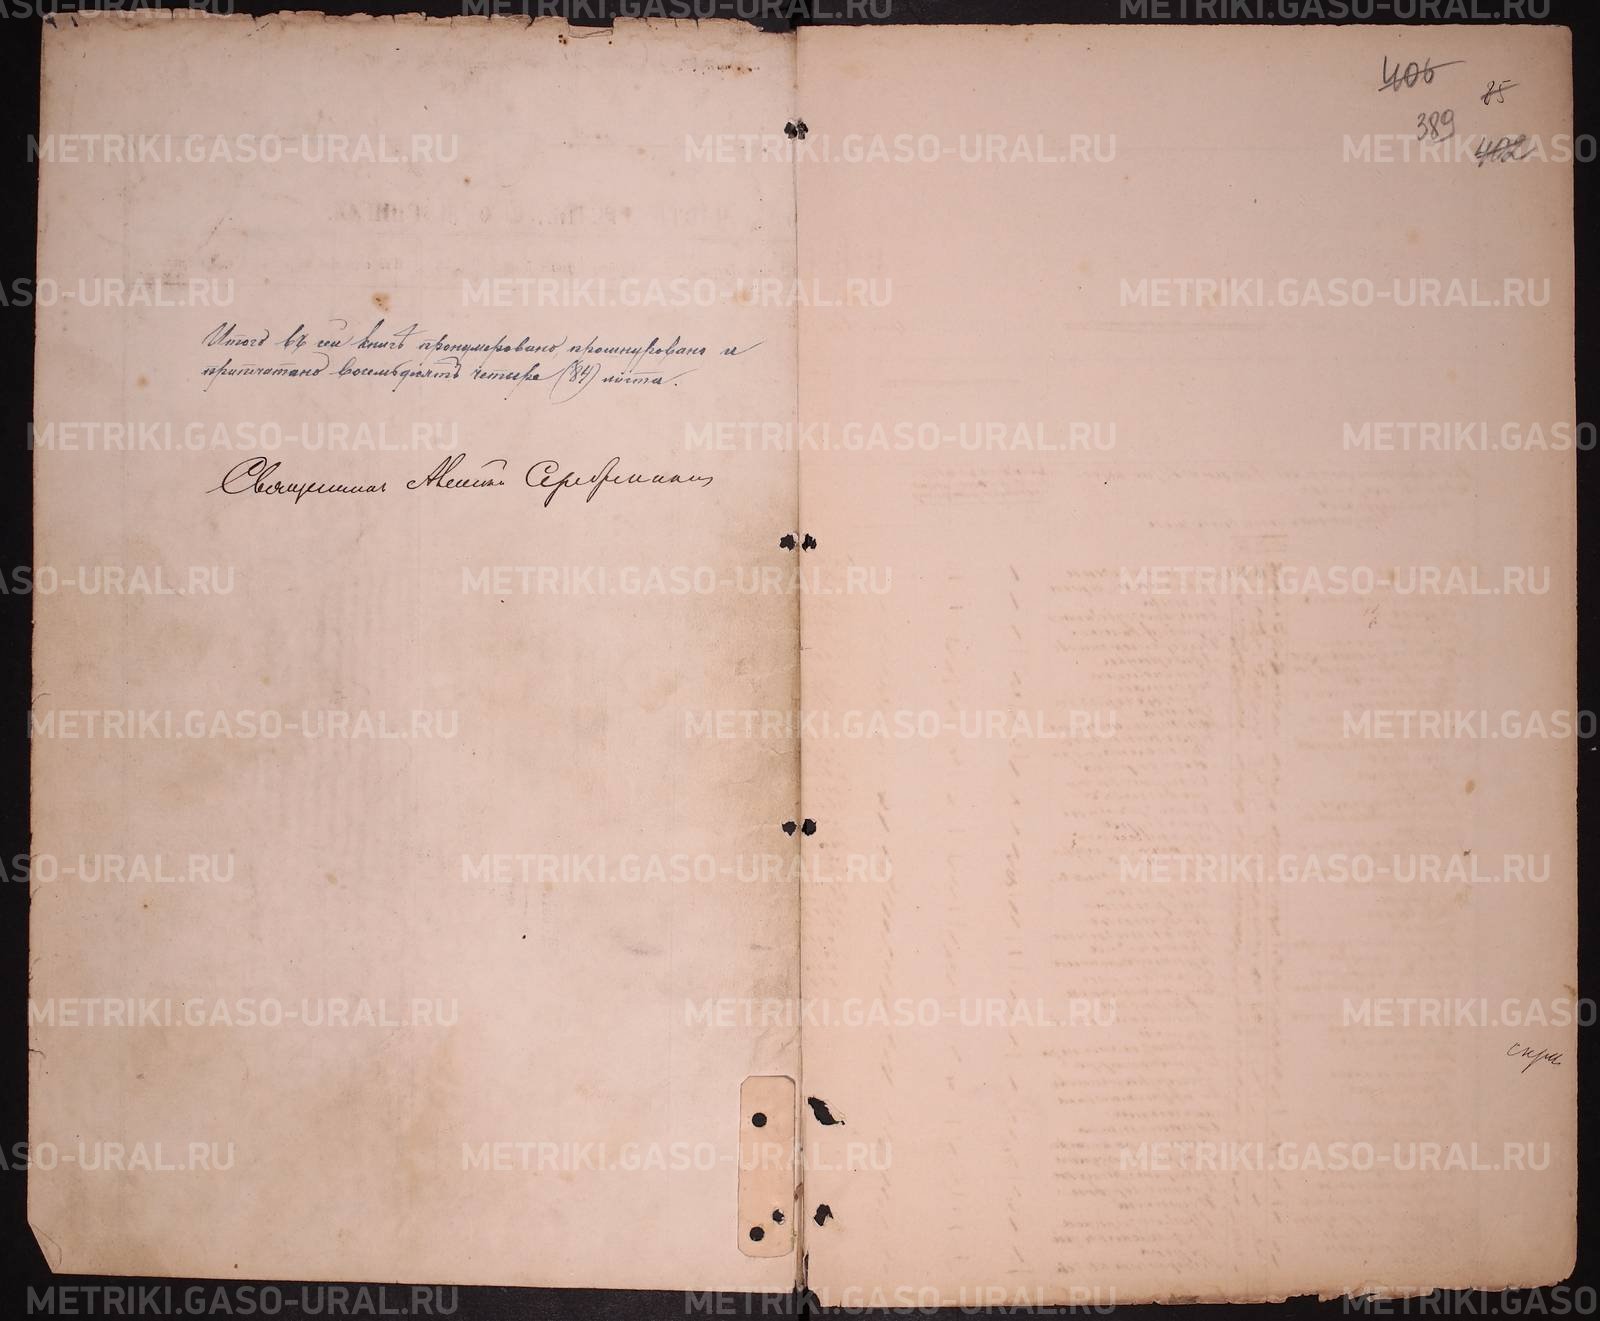 Итого въ сей книгѣ пронумеровано, прошнуровано и
припечатано восемьдесятъ четыре (84) листа.
Священникъ Серебренниковъ
406
85
389
402
METRIKI.GASO-URAL.RU